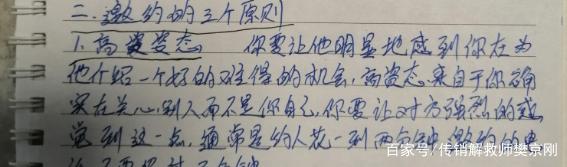 二.邀约的三个原则
1.高姿态 你要让他明显地感到你在为
他介绍一个好的难得的机会,高姿态来自于你确
实在关心别人而不是你自己,你要让对方强烈的感
觉到这一点,通常是约人花一到两分钟,邀约的电
百家号/传销解救师樊京刚